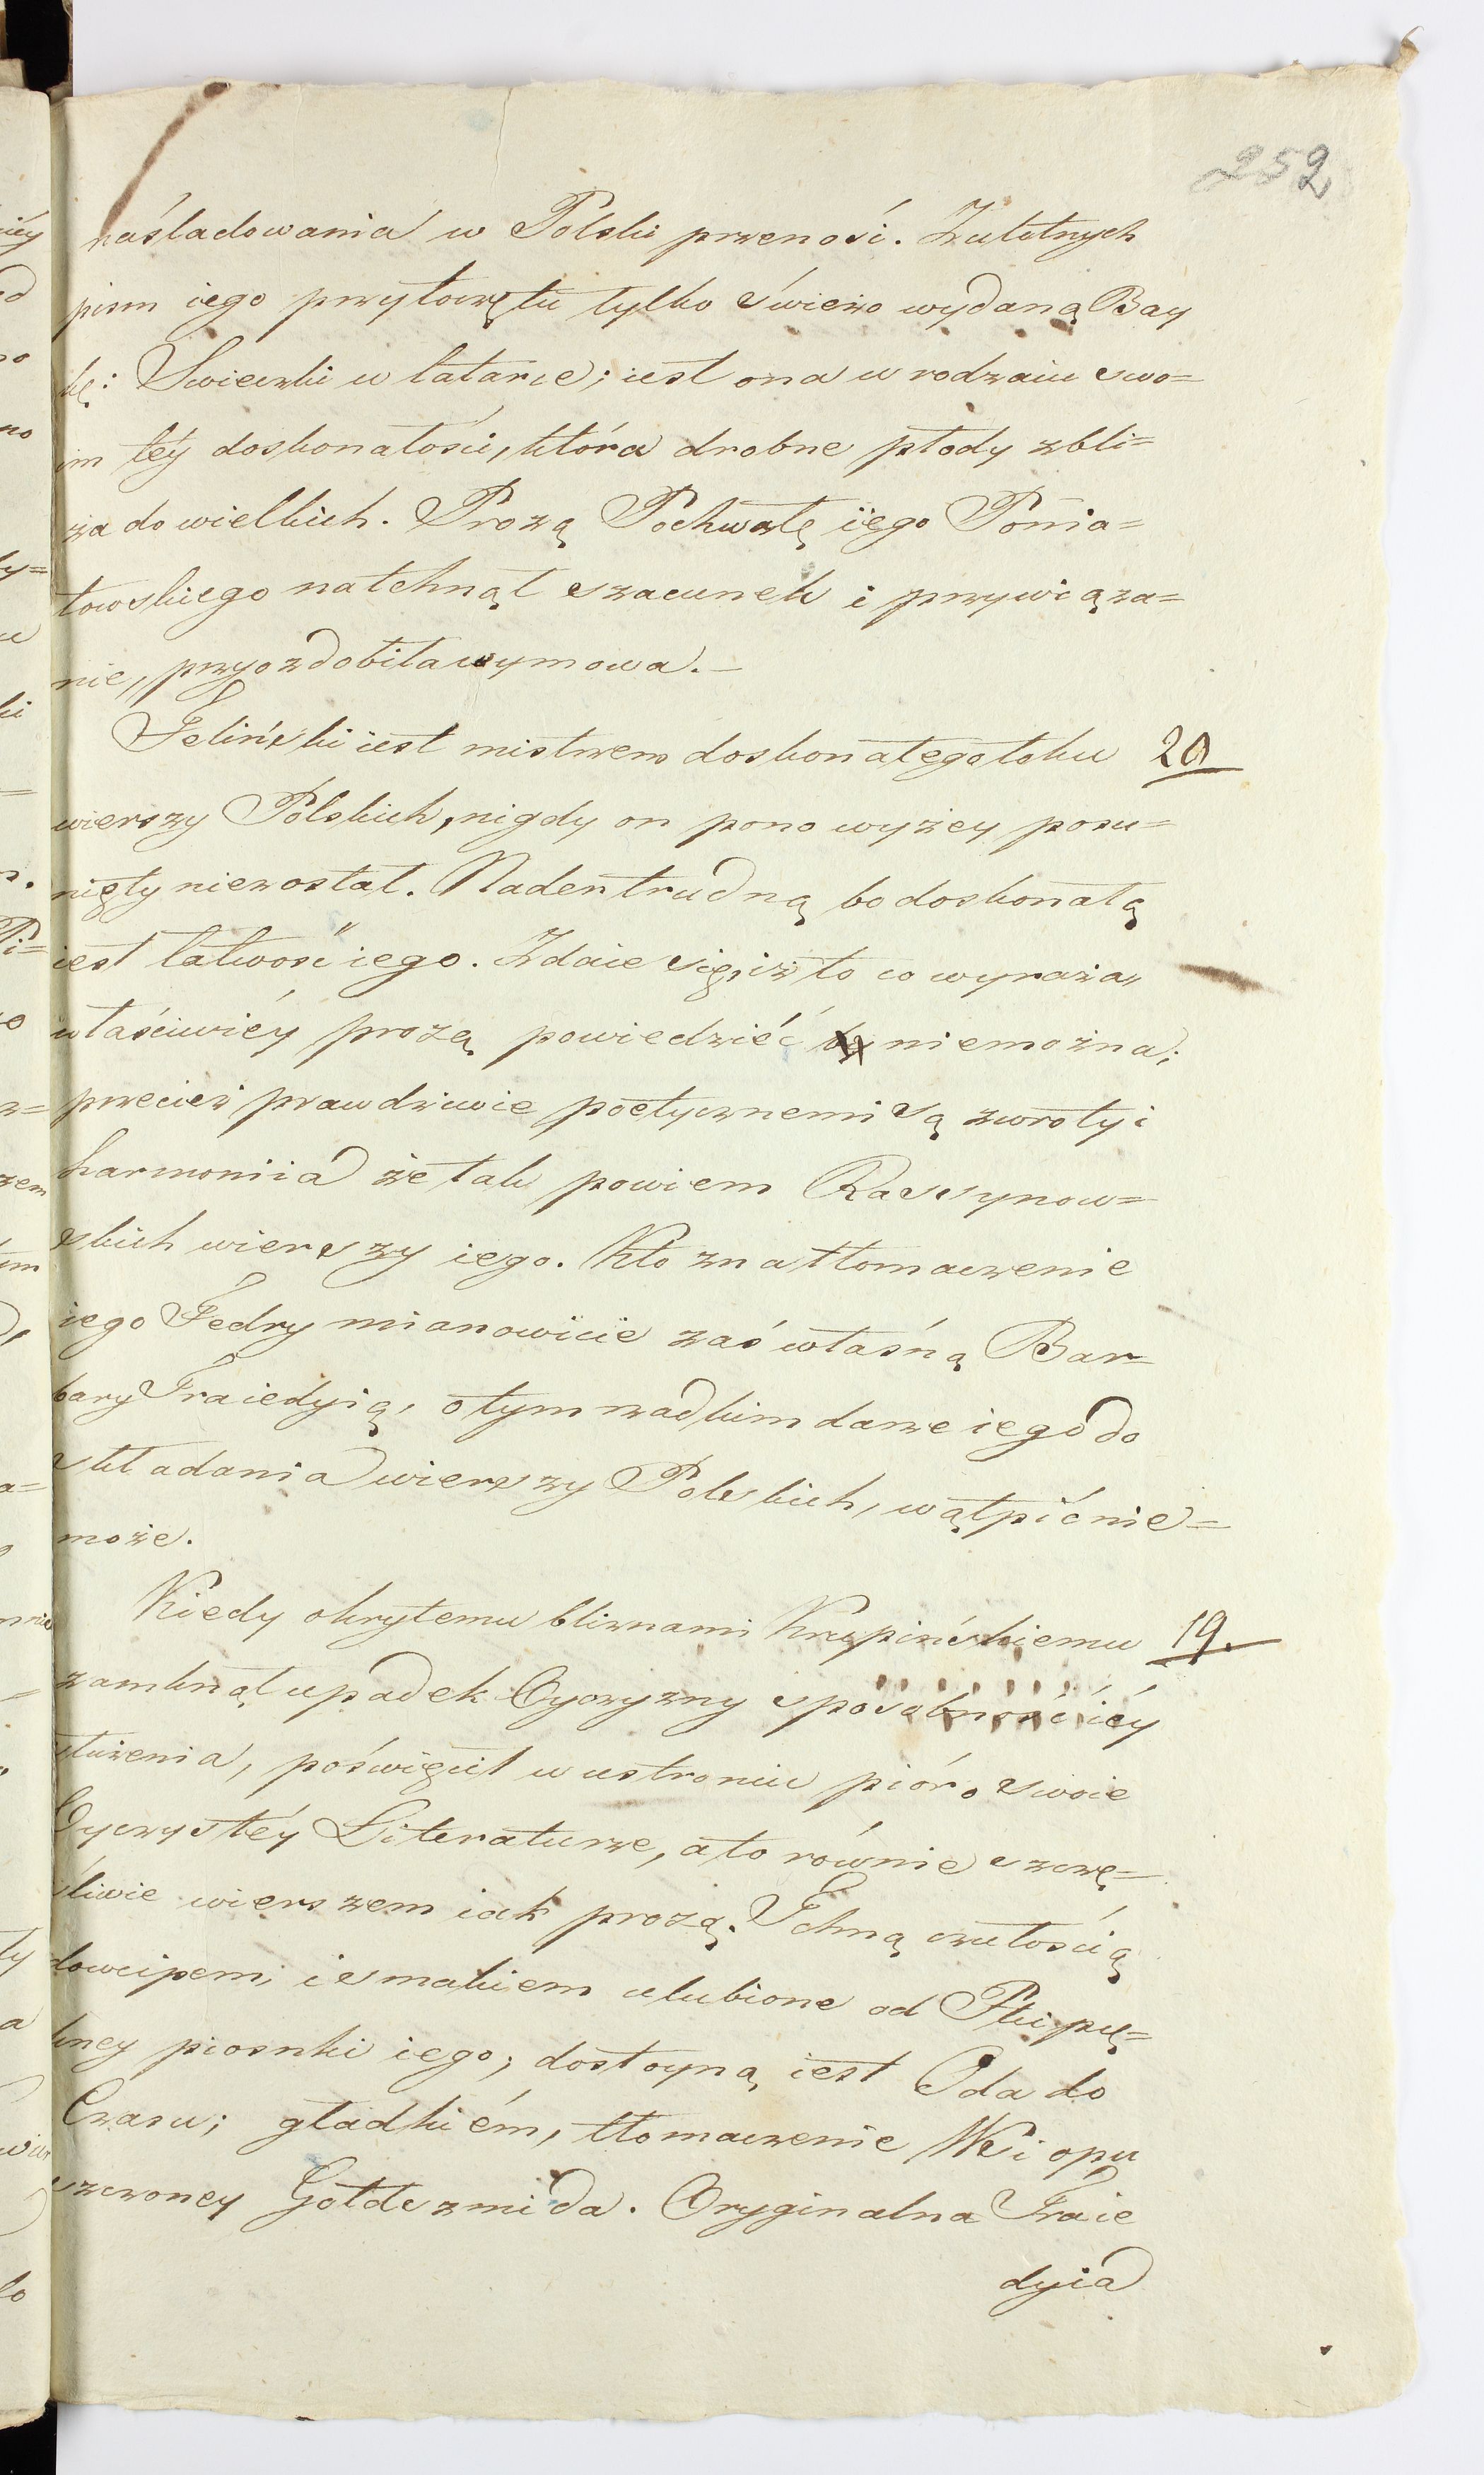 252
naśladowania w Polski przenośi. Z ulotnych
pism iego przytoczę tu tylko świeżo wydaną Bay
kę: Swieczki w latarce; iest ona w rodzaiu swo=
im téy doskonałości, która drobne płody zbli=
ża do wielkich. Prozą Pochwałę iego Ponia=
towskiego natchnął szacunek i przywiąza=
nie, przyozdobiła wymowa.—
Feliński iest mistrzem doskonałego toku 20
wierszy Polskich, nigdy on pono wyżey posu=
nięty niezostał. Nader trudną bo doskonałą
iest łatwość iego. Zdaie się, iż to co wyraża,
właściwiéy prozą powiedzićć niemożna;
przecież prawdziwie poetycznemi są zwroty i
harmoniia że tak powiem Rassynow=
skich wierszy iego. Kto zna tłomaczenie
iego Fedry mianowicie zaś własną Bar=
bary Traiedyią, o tym rzadkim darze iego do
składania wierszy Polskich, wątpić nie=
może.
Kiedy okrytemu bliznami Kropińskiemu 19.
zamknął upadek Oyczyzny sposobność iéy
służenia, poświęcił w ustroniu pióro swoie
Oyczystéy Literaturze, a to równie szczę=
śliwie wierszem iak prozą. Tchną czułością
dowcipem, i smakiem ulubione od Płci pię=
kney piosnki iego; dostoyną iest Oda do
Czasu; gładkiém, tłomaczenie Wsi opu
szczoney Goldszmida. Oryginalna Traie
dyia